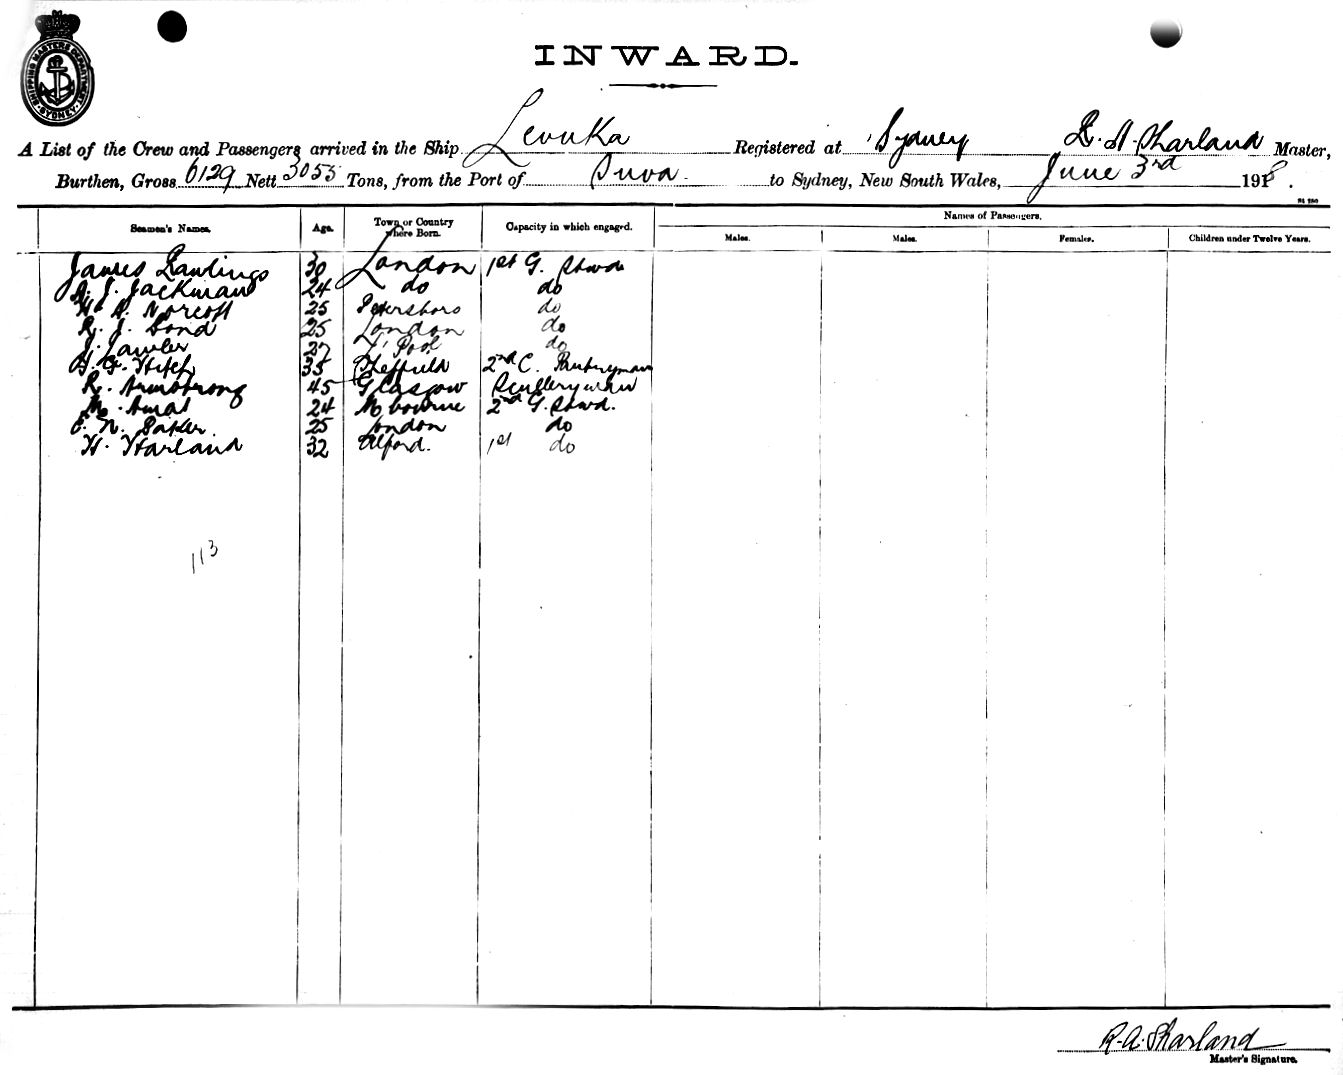 SHIPPING MASTERS DEPARTMENT SYDNEY
INWARD.
A List of the Crew and Passengers arrived in the Ship Levuka Registered at Sydney R. A. Sharland Master,
Burthen, Gross 6129 Nett 3055 Tons, from the Port of Suva to Sydney, New South Wales, June 3rd 1918.
Seamen's Names. Age. Town or Country where Born. Capacity in which engaged. Names of Passengers.
Males. Males. Females. Children under Twelve Years.
James Rawlings 30 London 1st G. Stwd
J. Jackman 24 do do
A. Norcott 25 Petersboro do
R. J. Bond 25 London do
J. Lawler 27 L'Pool do
H. G. Hitch 35 Sheffield 2nd C. Pantryman
R. Armstrong 45 Glasgow Scullery man
M. 24 Mbourne 2nd G. Stwd.
E. N. Baker. 25 London do
H. Harland 32 Alford. 1st do
113
R. A. Sharland
Master's Signature.